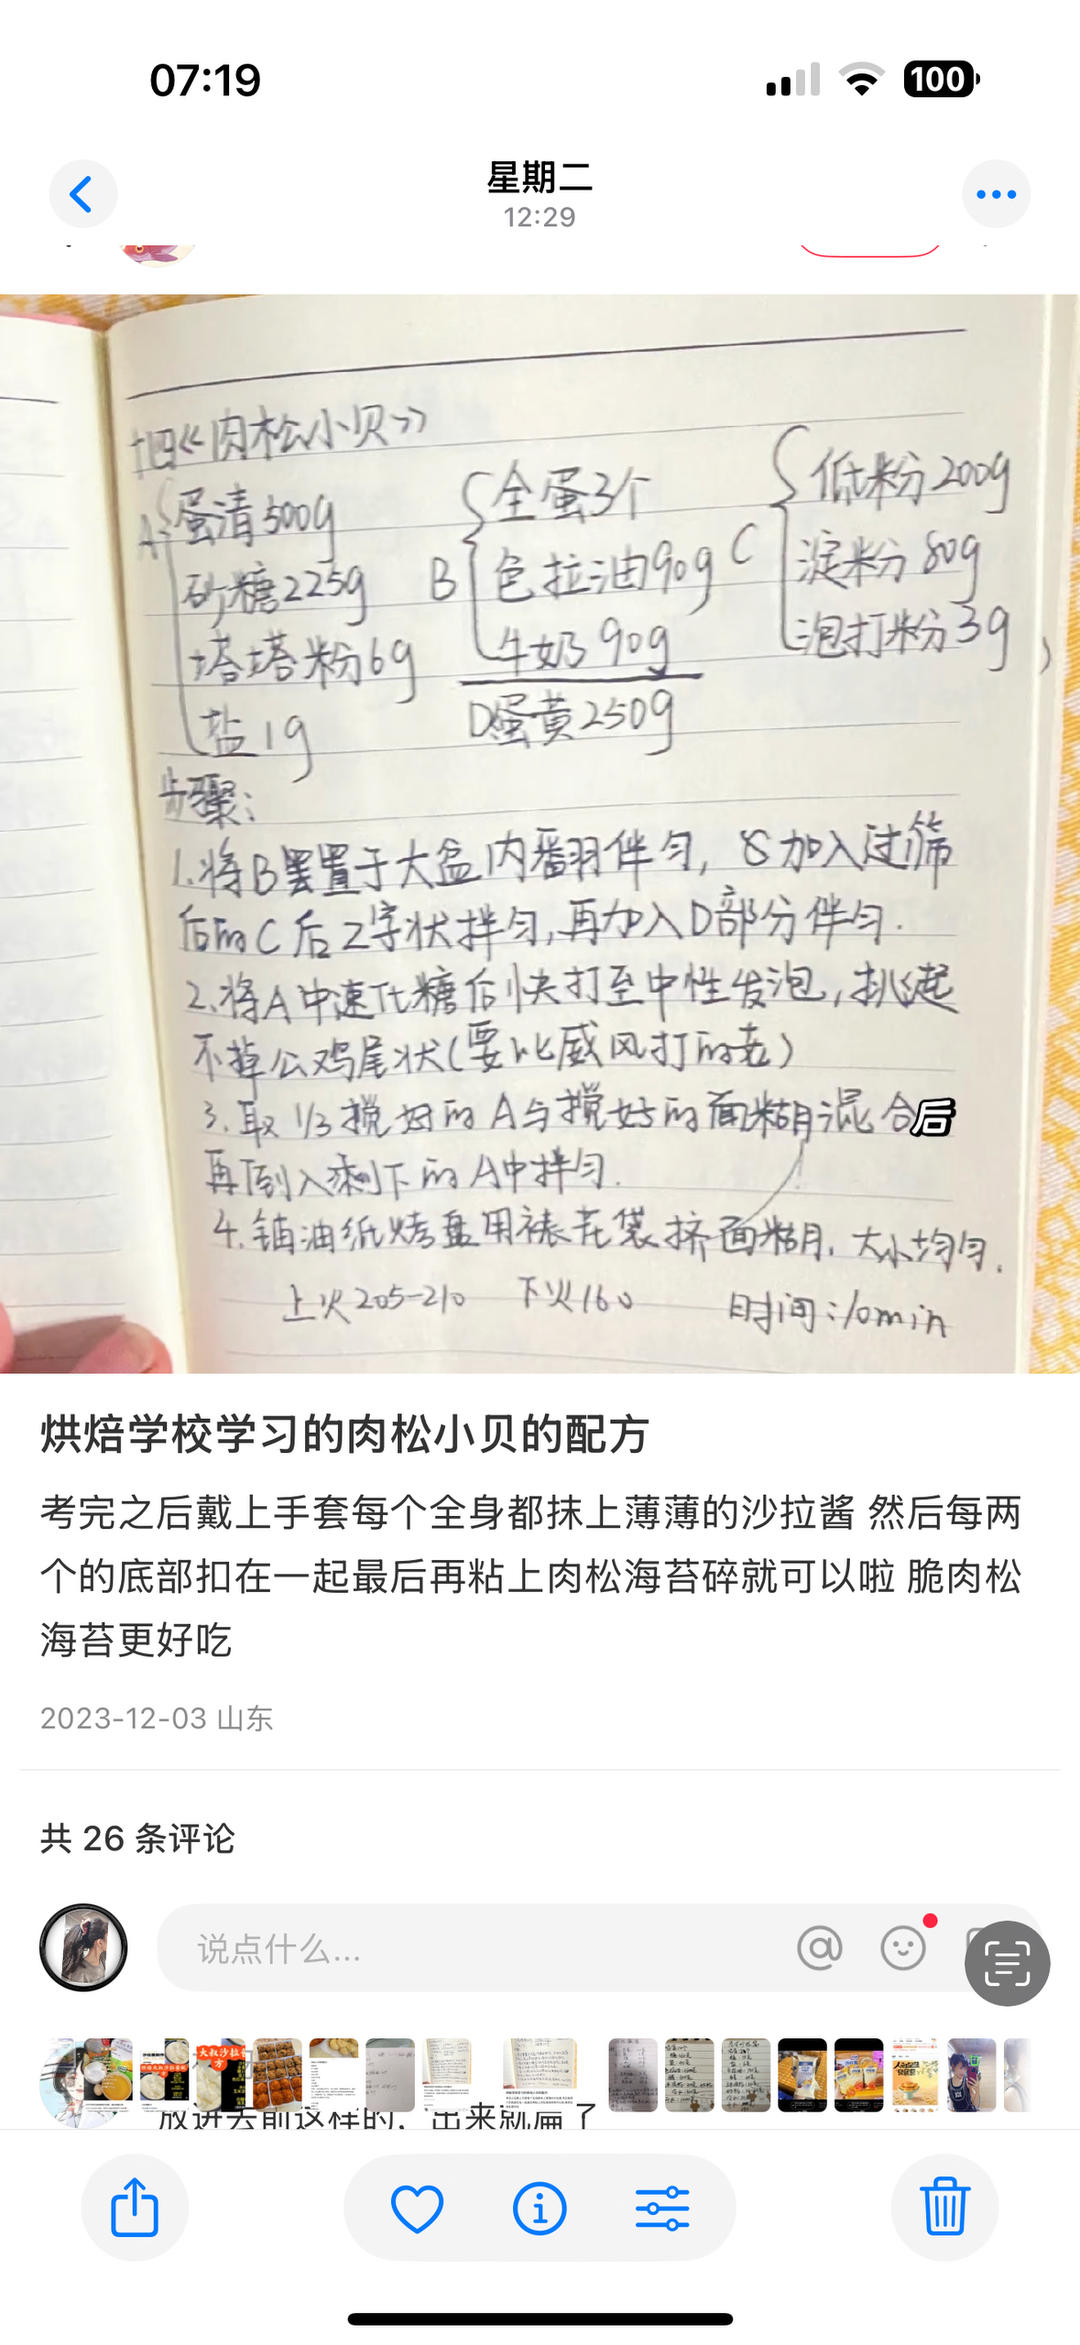 07:19
100
星期二
12:29
十四《肉松小贝》
A 蛋清500g
砂糖225g
塔塔粉6g
盐1g
B 全蛋3个
色拉油90g
牛奶90g
D蛋黄250g
C 低粉200g
淀粉80g
泡打粉3g
步骤:
1.将B置于大盆内翻伴匀,加入过筛
后的C后Z字状拌匀,再加入D部分伴匀.
2.将A中速化糖后快打至中性发泡,挑起
不掉公鸡尾状(要比戚风打的老)
3.取1/3搅好的A与搅好的面糊混合后
再倒入剩下的A中拌匀.
4.铺油纸烤盘用裱花袋挤面糊,大小均匀.
上火205-210 下火160 时间:10min
烘焙学校学习的肉松小贝的配方
考完之后戴上手套每个全身都抹上薄薄的沙拉酱 然后每两
个的底部扣在一起最后再粘上肉松海苔碎就可以啦 脆肉松
海苔更好吃
2023-12-03 山东
共 26 条评论
说点什么...
放进去前这样的，出来就扁了